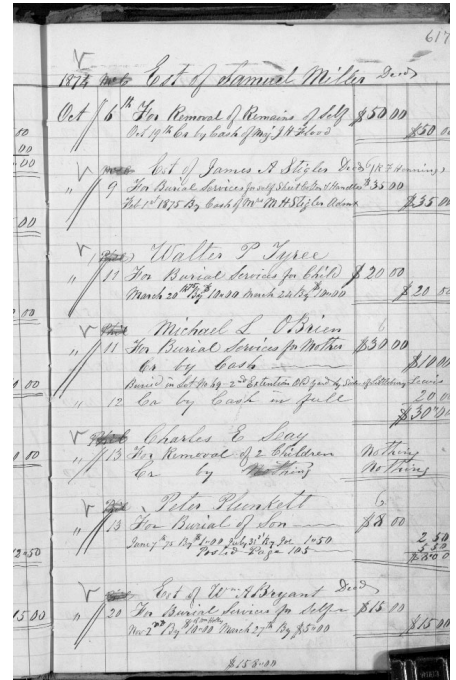 617
1874 Est of Samuel Miller Decd
Oct 6th For Removal of Remains of Self $50 00
Oct 19th Cr by Cash of Maj J H Flood $50 00
Est of James A Stigler Decd
" 9 For Burial Services for self $35 00
Feb 1st 1875 By Cash of Mrs M H Stigler Admx $35 00
Walter P Tyree
" 11 For Burial Services for Child $20 00
March 20th By $10=00 March 24 By $10=00 $20 00
Michael L OBrien
" 11 For Burial Services for Mother $30 00
Cr by Cash $10 00
Buried in Lot No 69 - 2nd Extention Old yard by Side of
" 12 Cr by Cash in full 20 00
$30=00
Charles E Seay
" 13 For Removal of 2 Children Nothing
Cr by Nothing Nothing
Peter Plunkett
" 13 For Burial of Son $8 00
June 7th 75 By July 31st By 1=50 2 50
Posted Page 105 5 50
$8=00
Est of Wm A Bryant Decd
" 20 For Burial Services for Self $15 00
Nov 2nd By $10=00 March 27th By $5=00 $15 00
$158=00